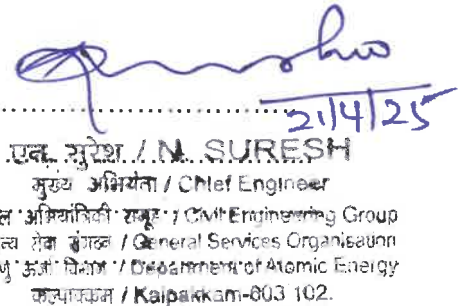 21/4/25
एन. सुरेश / N. SURESH
मुख्य अभियंता / Chief Engineer
अभियांत्रिकी समूह / Civil Engineering Group
सेवा संगठन / General Services Organisation
ऊर्जा विभाग / Department of Atomic Energy
कल्पाक्कम / Kalpakkam-603 102.